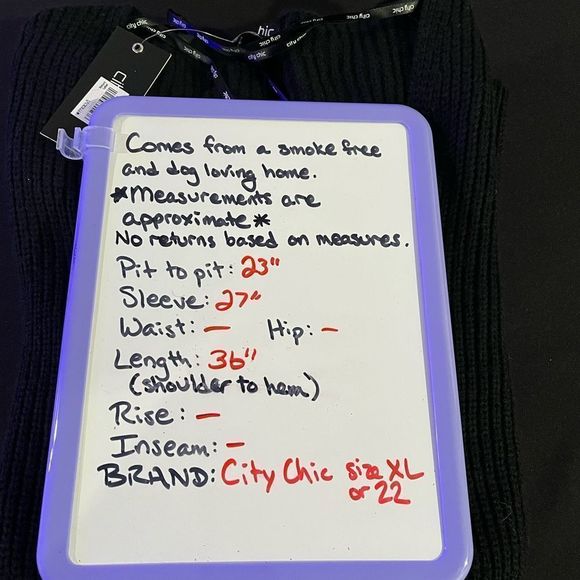 city chic
chic
hic
city chic
city chic
city chic
city chic
Comes from a smoke free
and dog loving home.
*Measurements are
approximate*
No returns based on measures.
Pit to pit: 23"
Sleeve: 27"
Waist: — Hip: -
Length: 36"
(shoulder to hem)
Rise: —
Inseam: -
BRAND: City Chic size XL
or 22